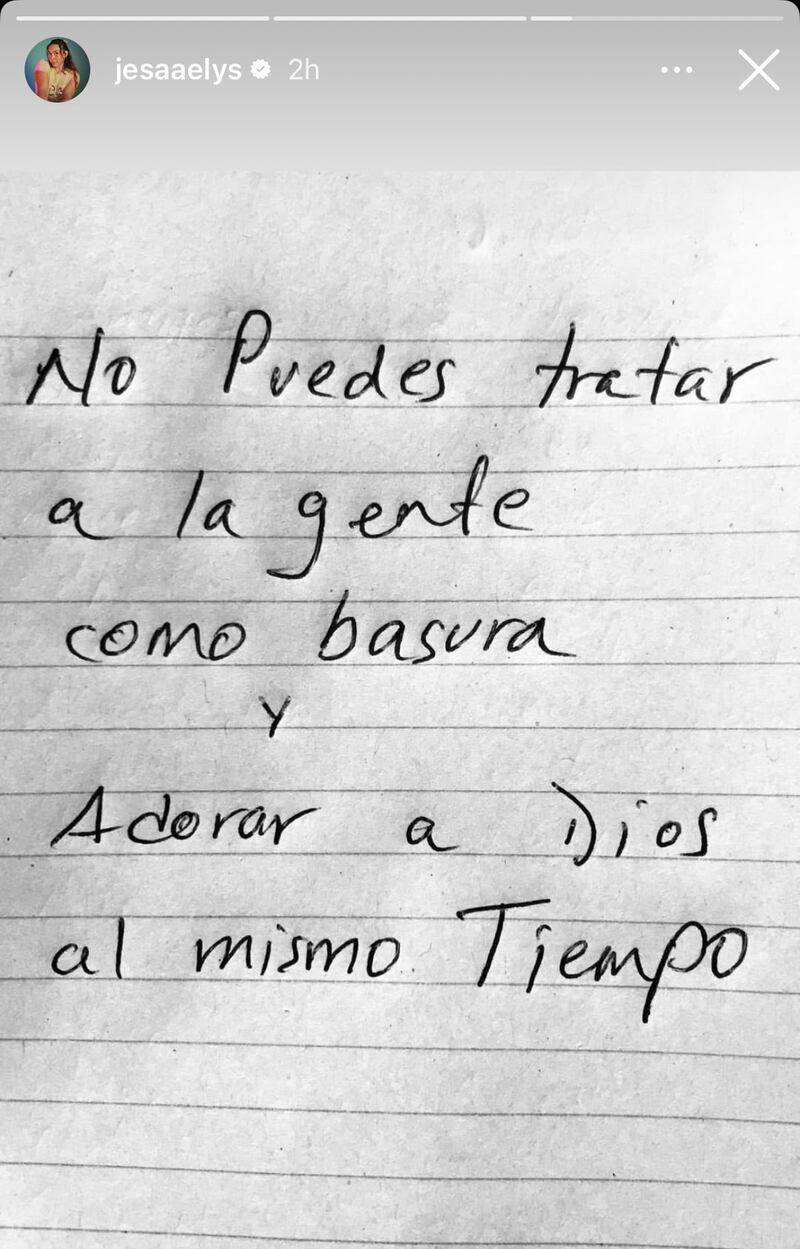 jesaaelys 2h
No Puedes tratar
a la gente
como basura
Y
Adorar a Dios
al mismo Tiempo